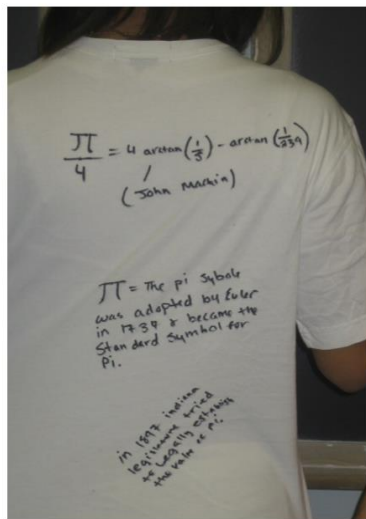 π/4 = 4 arctan(1/5) - arctan(1/239)
(John Machin)
π = The pi sybole
was adopted by Euler
in 1737 & became the
Standard Symbol for
Pi.
in 1897 indiana
legislature tried
to legally establish
the value of pi.